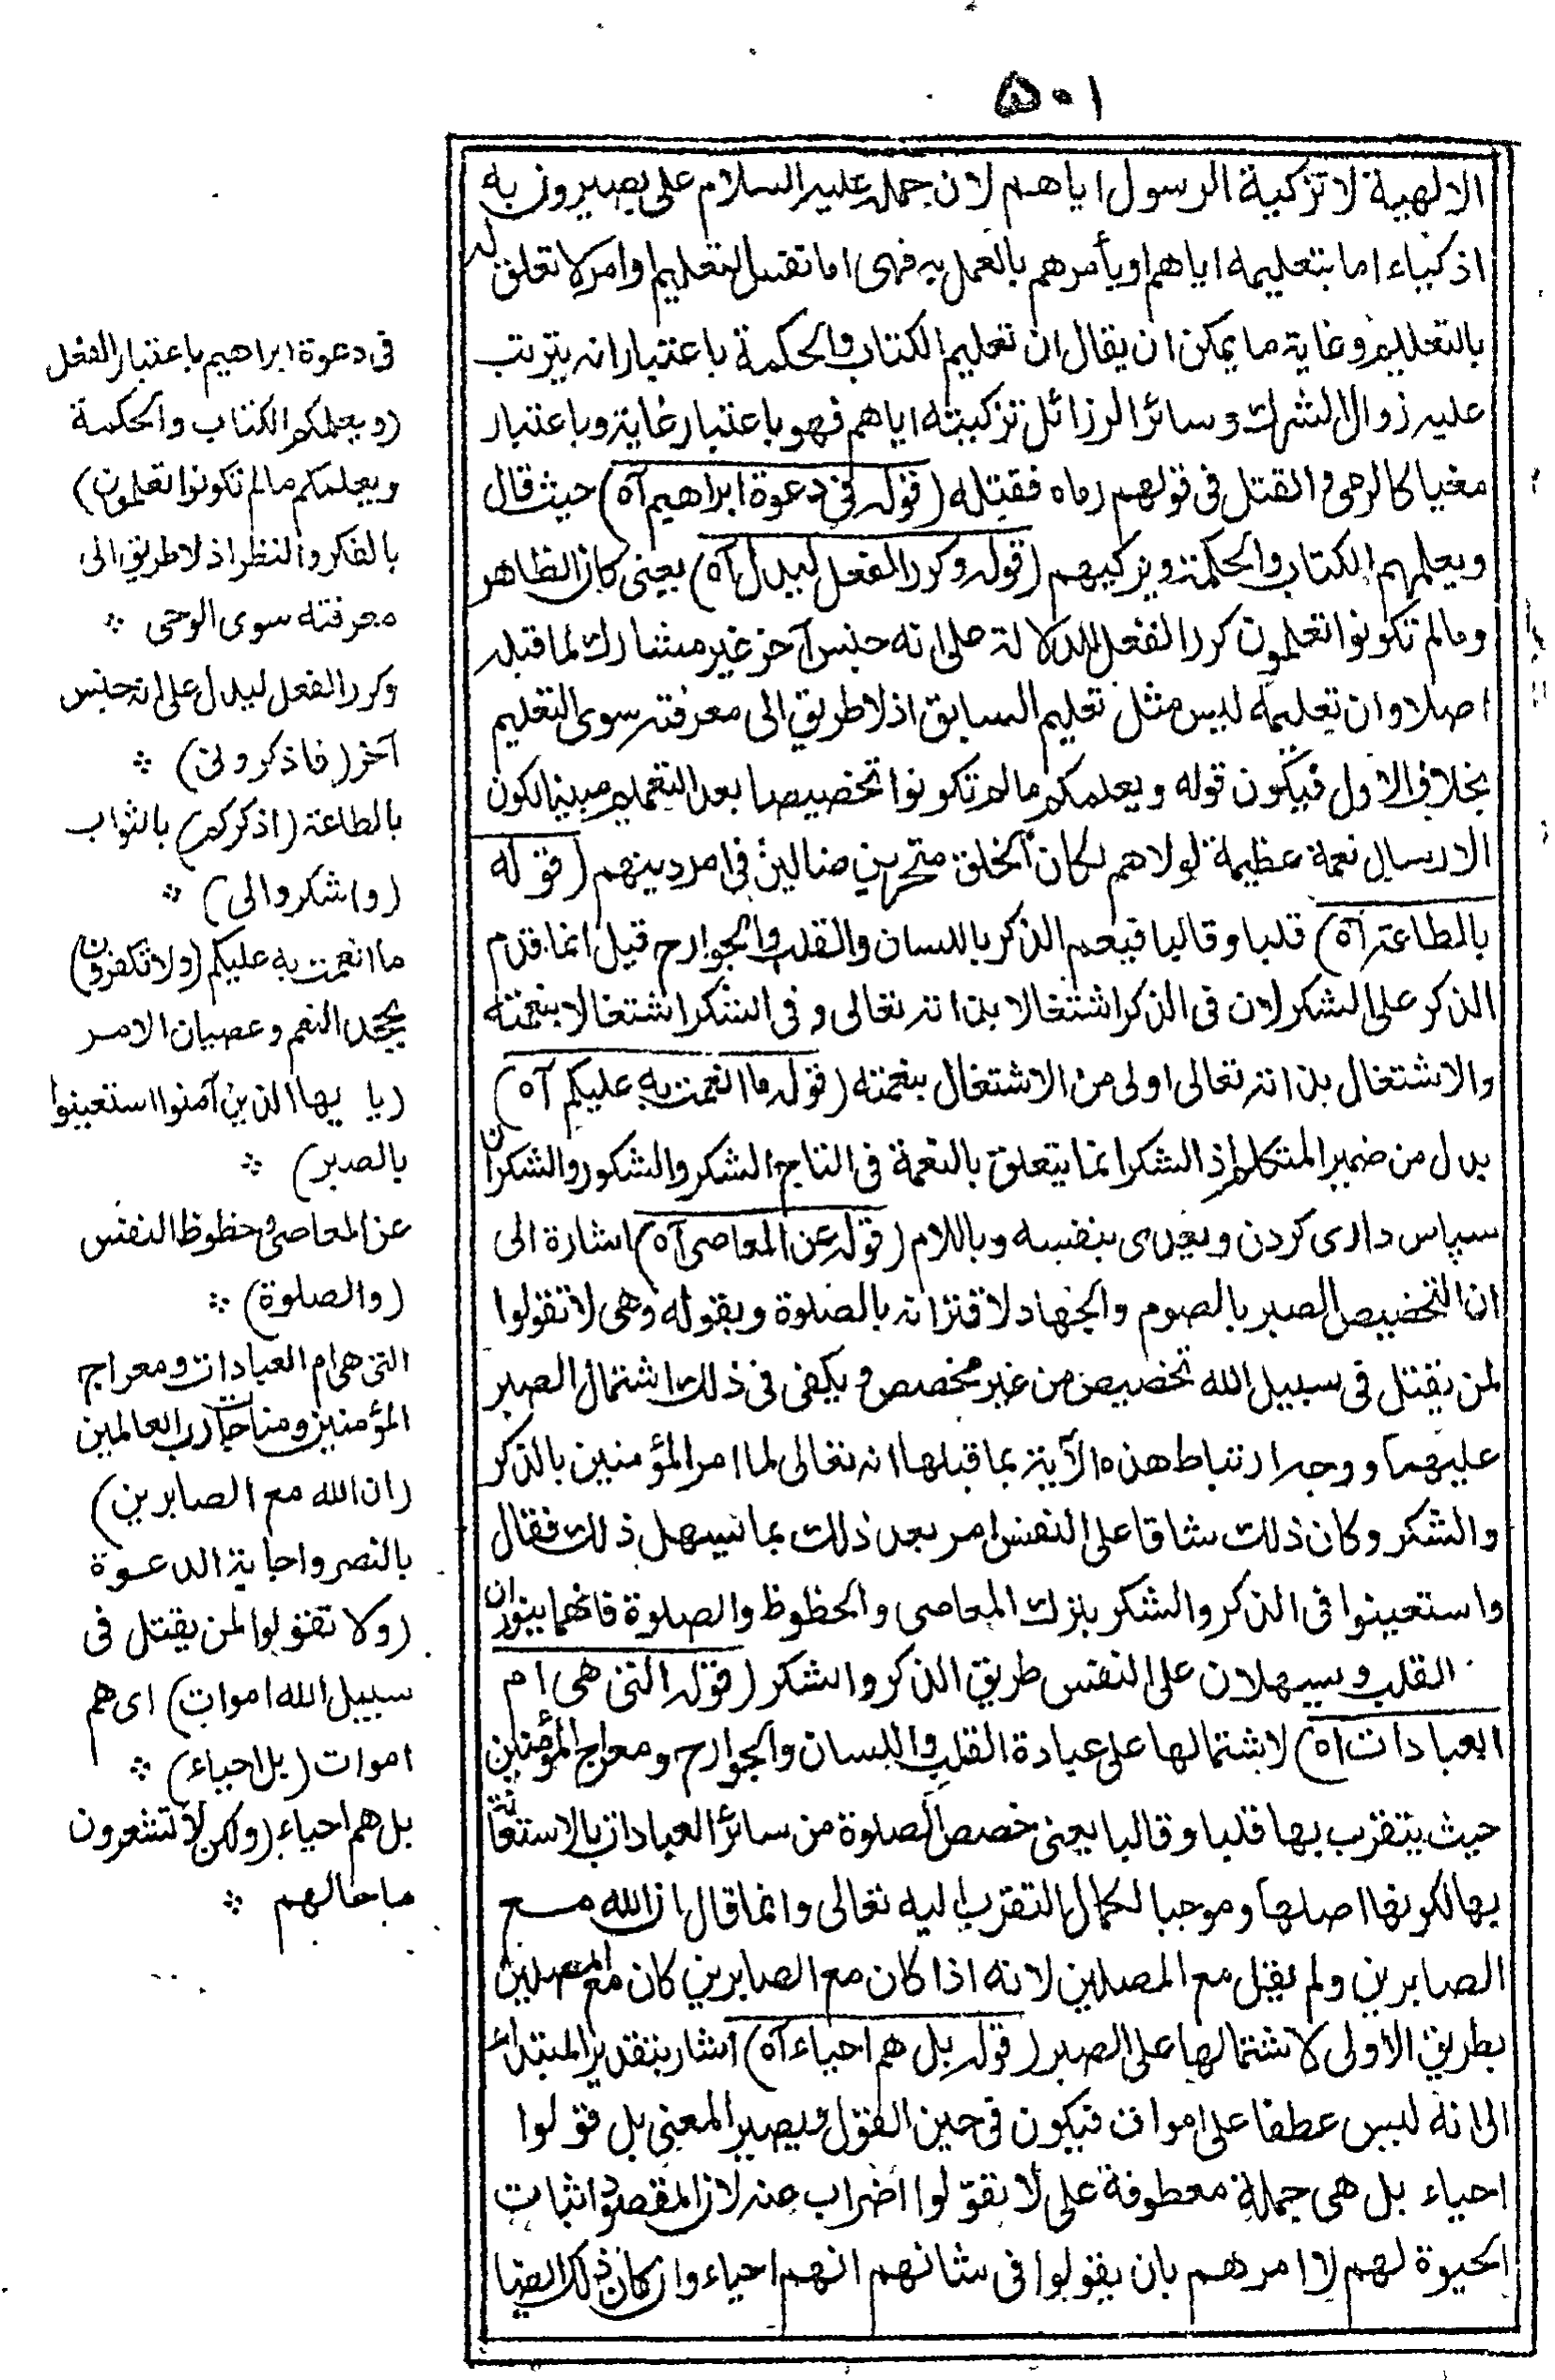 ٥٠١
الالهية لا تزكية الرسول اياهم لان جمله عليه السلام على يصيرون به
اذكياء اما بتعليمه اياهم او يأمرهم بالعمل به فهى اما نفس التعليم او امر لا تعلق له
بالتعليم وغاية ما يمكن ان يقال ان تعليم الكتاب والحكمة باعتبار انه يترتب
عليه زوال الشرك وسائر الرزائل تزكيته اياهم فهو باعتبار غاية وباعتبار
مغيا كالرمى والقتل فى قولهم رماه فقتله (قوله فى دعوة ابراهيم آه) حيث قال
ويعلمهم الكتاب والحكمة ويزكيهم (قوله وكرر الفعل ليدل آه) يعنى كان الظاهر
وما لم تكونوا تعلمون كرر الفعل للدلالة على انه جنس آخر غير مشارك لما قبله
اصلا وان تعليمه ليس مثل تعليم السابق اذ لا طريق الى معرفته سوى التعليم
بخلاف الاول فيكون قوله ويعلمكم ما لم تكونوا تخصيصا بعد التعميم مبينا لكون
الارسال نعمة عظيمة لولاهم لكان الخلق متحيرين ضالين فى امر دينهم (قوله
بالطاعة آه) قلبا وقالبا فيعم الذكر باللسان والقلب والجوارح قيل انما قدم
الذكر على الشكر لان فى الذكر اشتغالا بذاته تعالى وفى الشكر اشتغالا بنعمته
والاشتغال بذاته تعالى اولى من الاشتغال بنعمته (قوله ما انعمت به عليكم آه)
بدل من ضمير المتكلم اذ الشكر انما يتعلق بالنعمة فى التاج الشكر والشكور والشكران
سپاس دارى كردن ويعدى بنفسه وباللام (قوله عن المعاصى آه) اشارة الى
ان التخصيص الصبر بالصوم والجهاد لاقترانه بالصلوة وبقوله وهى لا تقولوا
لمن يقتل فى سبيل الله تخصيص من غير مخصص ويكفى فى ذلك اشتمال الصبر
عليهما ووجه ارتباط هذه الآية بما قبلها انه تعالى لما امر المؤمنين بالذكر
والشكر وكان ذلك شاقا على النفس امر بعد ذلك بما يسهل ذلك فقال
واستعينوا فى الذكر والشكر بترك المعاصى والحظوظ والصلوة فانهما ينوران
القلب ويسهلان على النفس طريق الذكر والشكر (قوله التى هى ام
العبادات اه) لاشتمالها على عبادة القلب واللسان والجوارح ومعراج المؤمنين
حيث يتقرب بها قلبا وقالبا يعنى خصص الصلوة من سائر العبادات بالاستعانة
بها لكونها اصلها وموجبا لكمال التقرب اليه تعالى وانما قال ان الله مع
الصابرين ولم يقل مع المصلين لانه اذا كان مع الصابرين كان مع المصلين
بطريق الاولى لاشتمالها على الصبر (قوله بل هم احياء آه) اشار بتقدير المبتدأ
الى انه ليس عطفا على اموات فيكون فى حين القول ويصير المعنى بل قولوا
احياء بل هى جملة معطوفة على لا تقولوا اضراب عنه لان المقصود اثبات
الحيوة لهم لا امرهم بان يقولوا فى شانهم انهم احياء وان كان ذلك ايضا
فى دعوة ابراهيم باعتبار الفعل
(ويعلمكم الكتاب والحكمة
ويعلمكم ما لم تكونوا تعلمون)
بالفكر والنظر اذ لا طريق الى
معرفته سوى الوحى ؞
وكرر الفعل ليدل على انه جنس
آخر (فاذكرونى) ؞
بالطاعة (اذكركم) بالثواب
(واشكروا لى) ؞
ما انعمت به عليكم (ولا تكفرون)
بجحد النعم وعصيان الامر
(يا يها الذين آمنوا استعينوا
بالصبر) ؞
عن المعاصى وحظوظ النفس
(والصلوة) ؞
التى هى ام العبادات ومعراج
المؤمنين ومناجات رب العالمين
(ان الله مع الصابرين)
بالنصر واجابة الدعوة
(ولا تقولوا لمن يقتل فى
سبيل الله اموات) اى هم
اموات (بل احياء) ؞
بل هم احياء (ولكن لا تشعرون
ما حالهم ؞